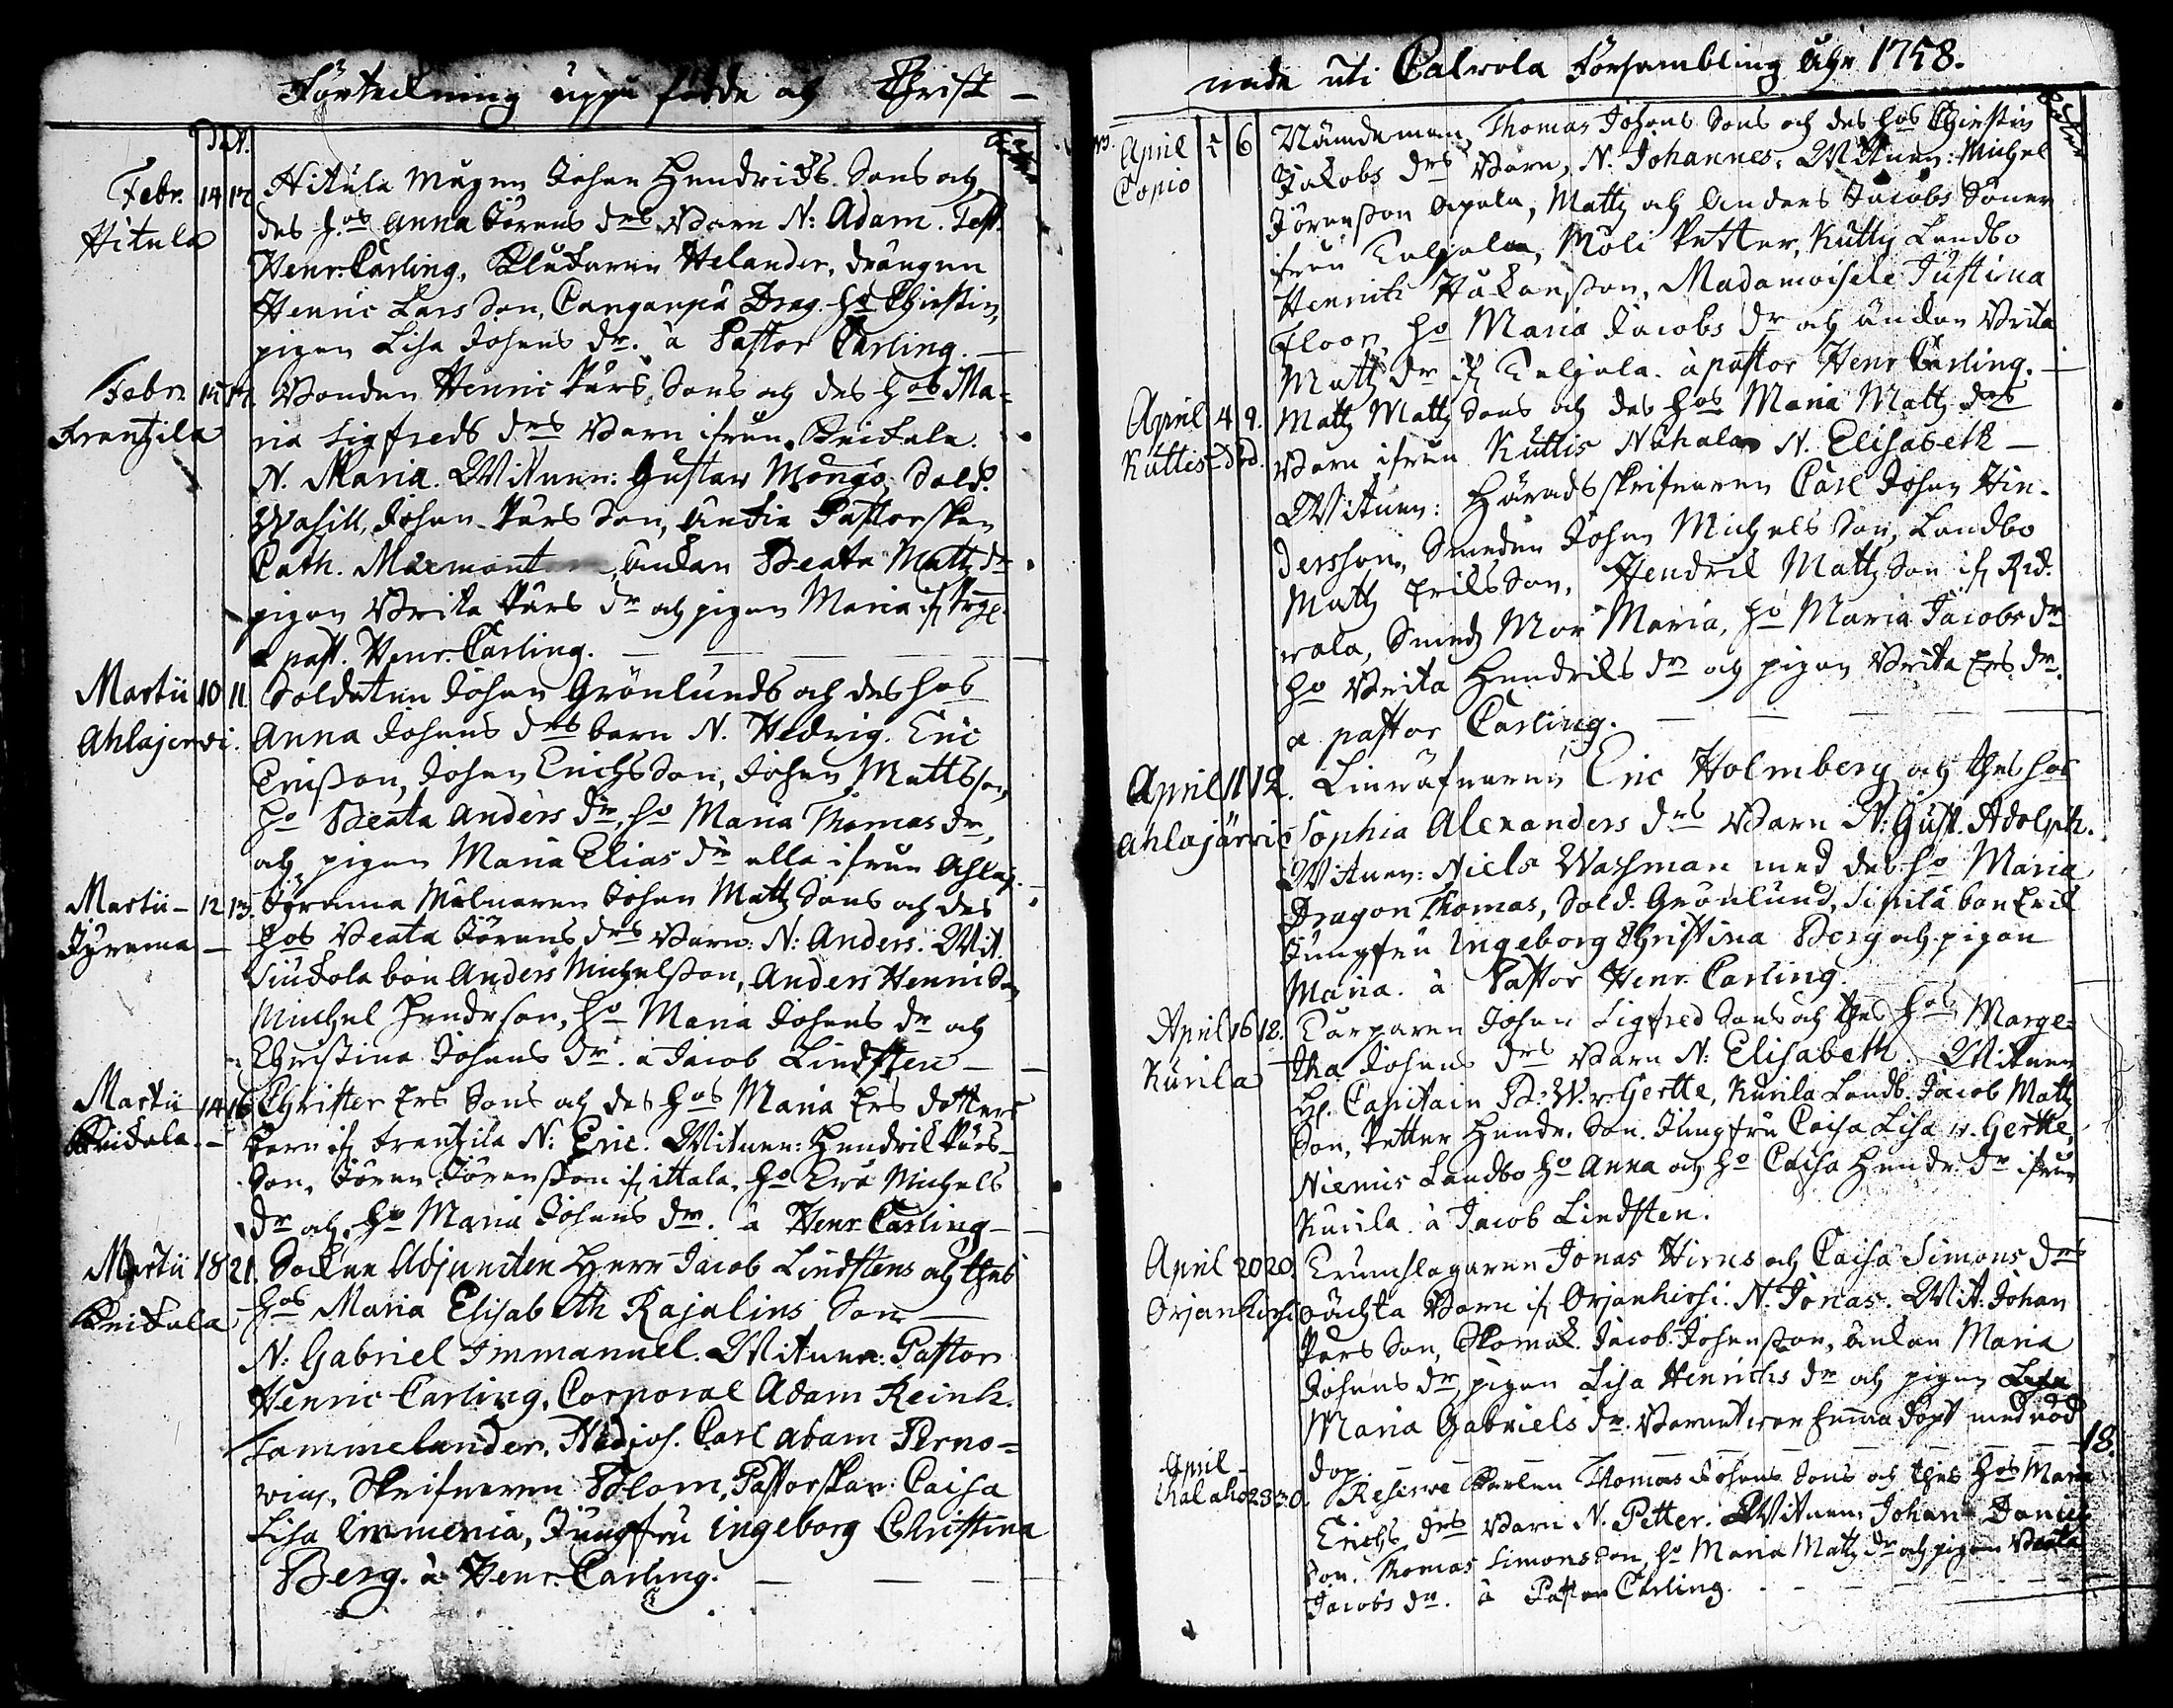 Förteckning uppå födde och Christ-
Febr. 14 17 Hitula Mågen Johan Hendrics Sons och
Hitula des h:os Anna Jörens drs Barn N: Adam. Test.
Henr. Carling, Klockaren Helander, drängen
Henric Lars Son, Canganpä Drag. ho Christin,
pigan Lisa Johans dr. à Pastor Carling.
Febr. 15 17. Bonden Henric Pärs Sons och des hos Ma-
Frantzila ria Sigfreds drs Barn ifrån
N. Maria. Witnen: Gustav Sold.
Johan Pärs Son, Änkia Pastorskan
Cath. änkan Beata Matts dr
pigan Brita Pärs dr och pigan Maria
à past. Henr. Carling.
Martii 10 11 Soldaten Johan Grönlunds och des hos
Ahlajerwi. Anna Johans drs barn N. Hedvig. Eric
Ericsson, Johan Erichs Son, Johan Mattsson,
ho Beata Anders dr, ho Maria Thomas dr,
och pigan Maria Elias dr alla ifrån Ahlaj.
Martii - 12 13. Jyrama Målnaren Johan Matts Sons och des
Jyrama - hos Beata Jörens drs Barn: N: Anders. Wit.
bon Anders Michelsson, Anders Henricson
Michel Hendrson, ho Maria Johans dr och
Christina Johans dr. à Jacob Lindsten -
Martii 14 16 Christer Ers Sons och des hos Maria Ers dotters
Barn if. Frantzila N: Eric. Witnen: Hendrik Pärs-
Son, Jören Jörensson if. ittala, ho Ewa Michels
dr och ho Maria Johans dr. à Henr. Carling -
Martii 18 21. Sockne Adjuncten Herr Jacob Lindstens och thes
hos Maria Elisabeth Rajalins Son
N: Gabriel Immanuel. Witnen: Pastor
Henric Carling, Corporal Adam Reinh.
Tammelander, Carl Adam Perno-
Skrifvaren Blom, Pastorskan: Caisa
Lisa Jungfru Ingeborg Christina
Berg. à Henr. Carling.
nade uti Calvola Försambling Åhr 1758.
April 6 Nämdeman Thomas Johans Sons och des hos Christin
Copio Jakobs drs Barn, N. Johannes. Witnen: Michel
Jörensson Matts och Anders Jacobs Söner
ifrån Petter, Landbo
Henrich Håkansson, Madamoisele Justina
Floor, ho Maria Jacobs dr och änkan Brita
Matts dr à pastor Henr Carling.
April 4 9. Matts Matts Sons och des hos Maria Matts drs
Kuttis Barn ifrån Kuttis N. Elisabeth
Witnen: Häradsskrifvaren Carl Johan Hin-
dersson, Smeden Johan Michels Son, Landbo
Matts Eriks Son, Hendrik Matts Son if Rid-
vala, Mor Maria, ho Maria Jacobs dr
ho Brita Hendriks dr och pigan Brita Ers dr.
à pastor Carling.
April 11 12. Linväfvaren Eric Holmberg och thes hos
Ahlajärvi Sophia Alexanders drs Barn N: Gust. Adolph.
Witnen: Niels Washman med des ho Maria
Dragon Thomas, Sold. Grönlund, Sipilä bon Erik
Jungfru Ingeborg Christina Berg och pigan
Maria. à Pastor Henr. Carling.
April 16 18. Torparen Johan Sigfred Sons och thes hos Marge-
Kurila tha Johans drs Barn N: Elisabeth. Witnen
Capitain B. W. v. Gertte, Kurila Landb. Jacob Matts
Son, Petter Hendr. Son. Jungfru Caisa Lisa v. Gertte,
Niemis Landbo ho Anna och ho Caisa Hendr. dr ifrån
Kurila. à Jacob Lindsten.
April 20 20. Trumslagaren Jonas Hirns och Caisa Simons drs
Orjanhirsi oächta Barn if. Orjanhirsi. N. Jonas. Wit: Johan
Pärs Son, Skomak. Jacob Johansson, änkan Maria
Johans dr, pigan Lisa Henrichs dr och pigan
Maria Gabriels dr. Barnet war hemma döpt med nöd
dop.
18.
April - Reserve Karlen Thomas Johans Sons och thes hos Maria
28 30. Erichs drs Barn N. Petter. Witnen: Johan Daniel
Son. Thomas Simons Son, ho Maria Matts dr och pigan Beata
Jacobs dr. à Pastor Carling.